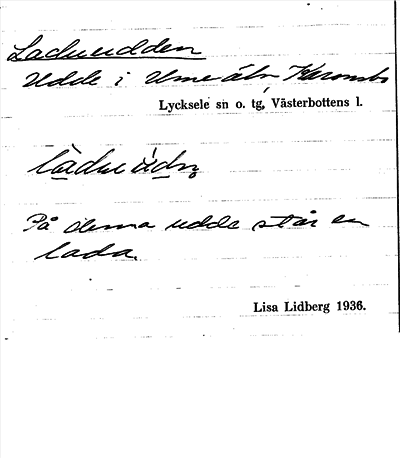 Laduudden
Udde i Ume älv
Lycksele sn o. tg, Västerbottens l.
På denna udde står en
lada.
Lisa Lidberg 1936.